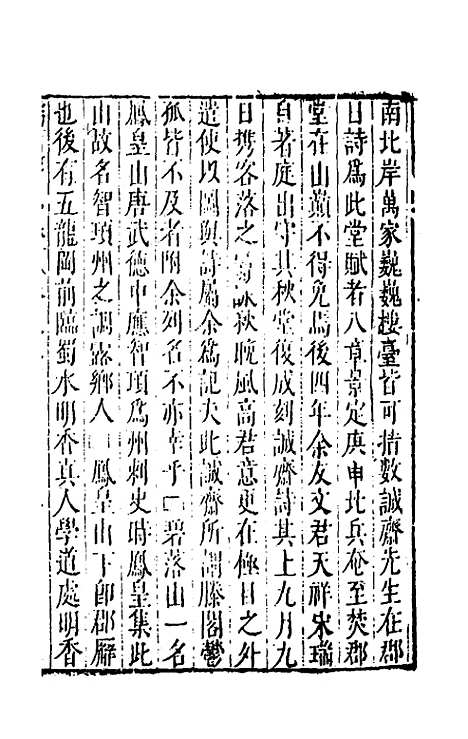 南北岸萬家巍巍樓臺皆可指數誠齋先生在郡
日詩爲此堂賦者八章景定庚申北兵奄至焚郡
堂在山巔不得免焉後四年余友文君天祥宋瑞
自著庭出守其秋堂復成刻誠齋詩其上九月九
日携客落之哥詠秋晚風高君意更在極目之外
遣使以圖與詩屬余爲記夫此誠齋所謂滕閣鬱
孤皆不及者附余列名不亦幸乎□碧落山一名
鳳皇山唐武德中應智頊爲州刺史時鳳皇集此
山故名智頊州之調露鄉人□鳳皇山下卽郡廨
也後有五龍岡前臨蜀水明香真人學道處明香